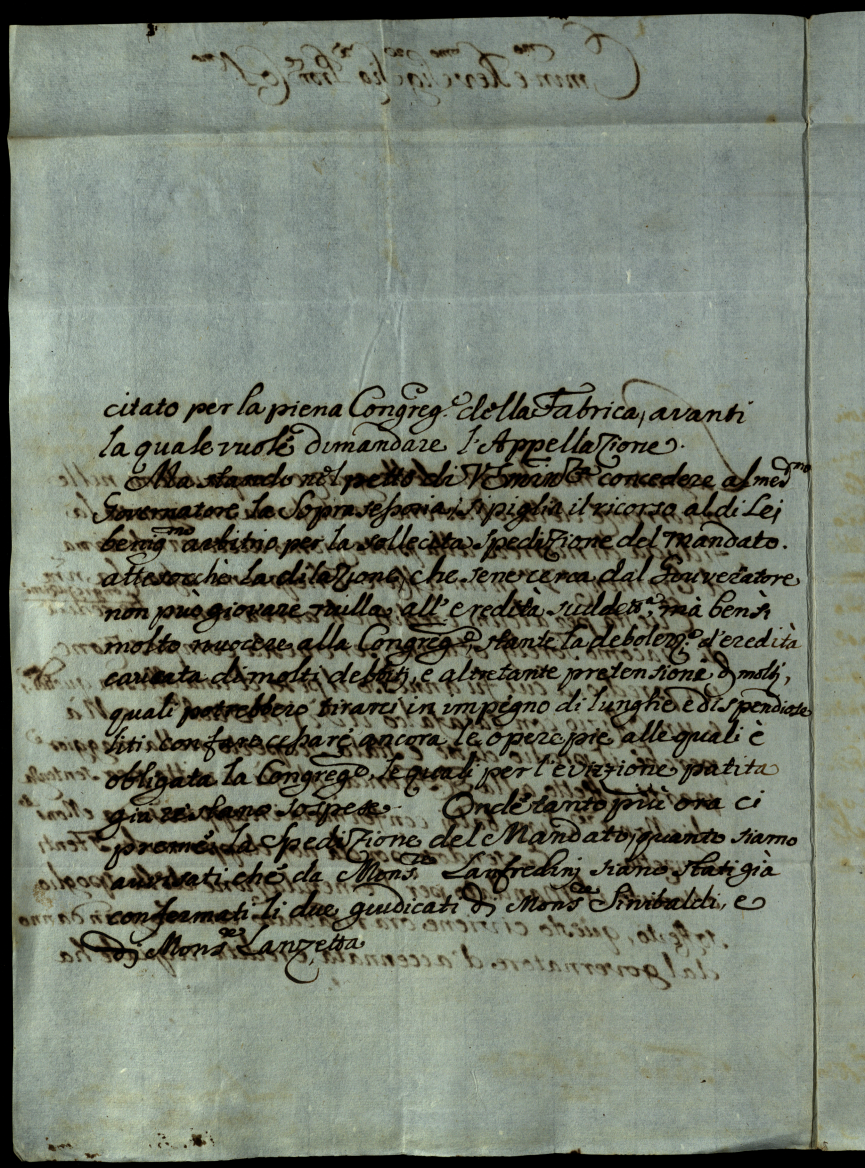 citato per la piena Congreg.e della Fabrica, avanti
la quale vuole dimandare l'Appellazione.
Ma stando nel petto di V. Eminza concedere al medmo
Governatore la Soprasessoria, si piglia il ricorso al di Lej
benigmo arbitrio per la sollecita spedizione del mandato.
attesocchè la dilazione, che sene cerca dal Gouveratore
non può giovare nulla all'eredità suddeta, mà bensì
molto nuocere alla Congrege, stante la debolezza d'eredità
caricata di molti debiti, e altretante pretensione di moltj,
quali potrebbero tirarci in impegno di lunghe e dispendiose
liti con fare cessare ancora le opere pie alle quali è
obligata la Congrege, le quali per l'evizione patita
già restano sospese. Onde tanto più ora ci
preme la Spedizione del Mandato, quanto siamo
avvisati che da Monsre Lanfredinj siano stati già
confermati li due giudicati di Monsre Sinibaldi, e
di Monsre Lanzetta